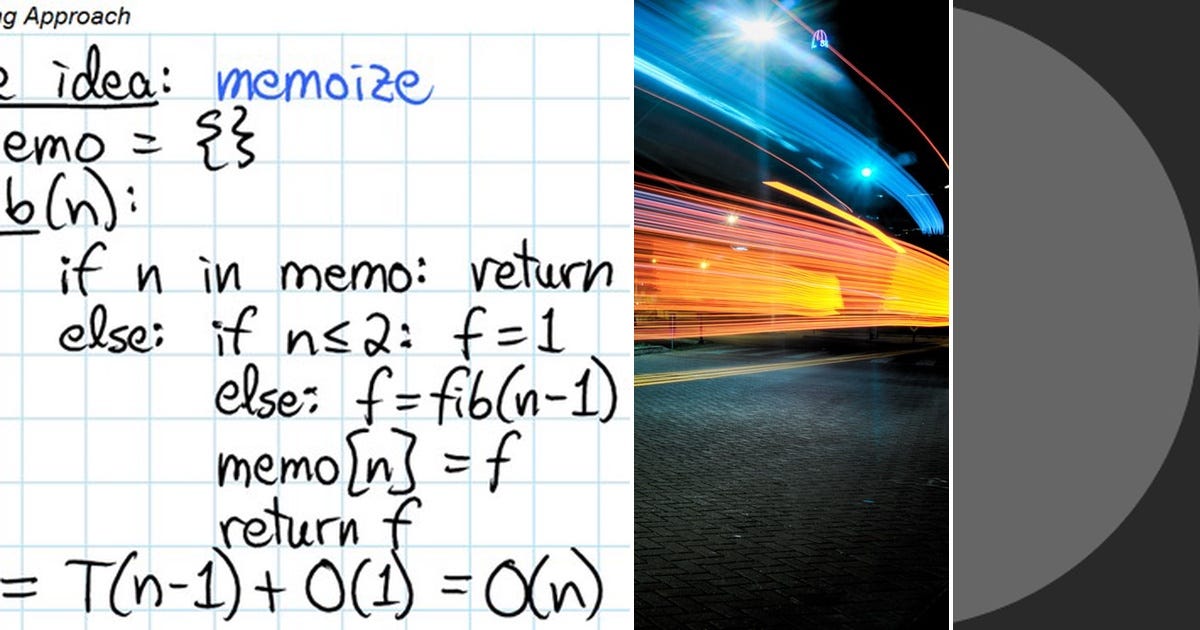 ng Approach
e idea: memoize
emo = {}
b(n):
if n in memo: return
else: if n≤2: f=1
else: f=fib(n-1)
memo[n] = f
return f
= T(n-1) + O(1) = O(n)